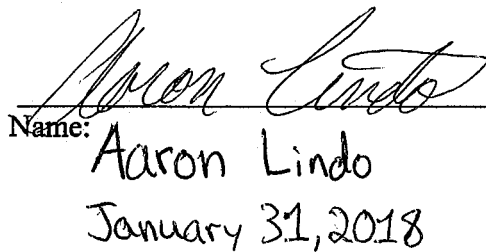 Aaron Lindo
Name:
Aaron Lindo
January 31, 2018